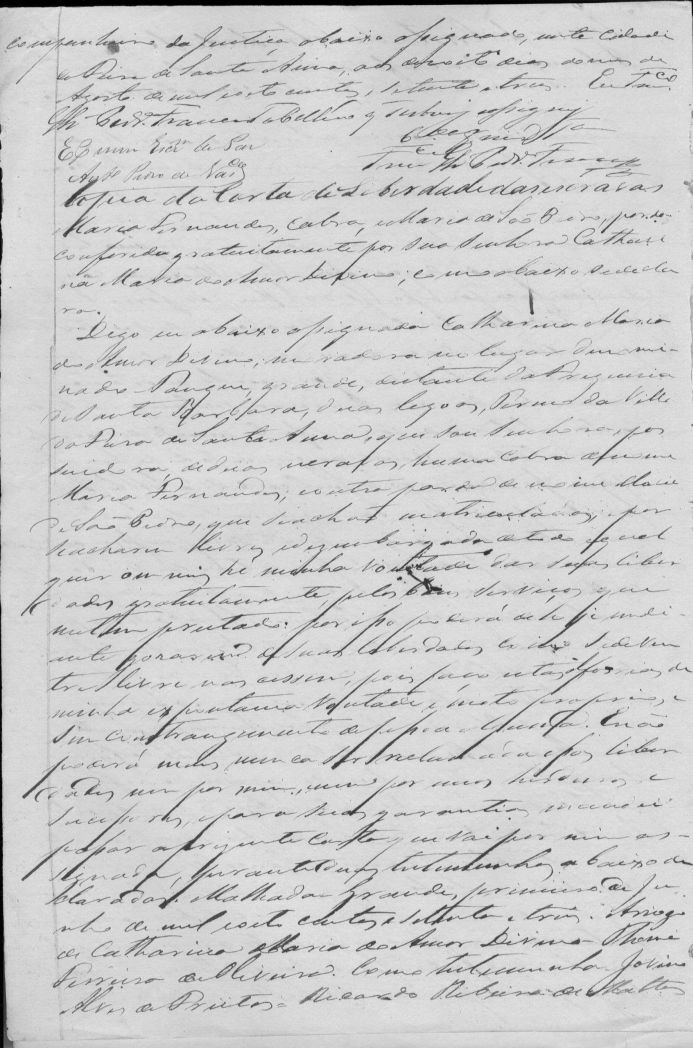 companheiro da Justiça abaixo assignado, neste Cidade
da Feira de Santa Anna, aos dezoito dias do mes de
Agosto de mil oito centos, setenta e tres. Eu
Pedr. Franco Tabellião q subscrevy assigney

Copia da Carta de Liberdade das escravas
Maria Fernandes, Cabra, e Maria de São Pedro, parda,
conferida gratuitamente por sua Senhora Cathari
na Maria do Amor Divino, como abaixo se decla
ra.
Digo eu abaixo assignada Catharina Maria
do Amor Divino, moradora no lugar denomi
nado grande, distante da Freguezia
de Santa Barbara, duas legoas, Termo da Villa
da Feira de Santa Anna, que sou Senhora, pos
suidora, de duas escravas, huma Cabra de nome
Maria Fernandes, e outra parda de nome Maria
de São Pedro, que se achão matriculadas, por
se acharem livres e dezembargadas de todo e qual
quer onus, hé minha vontade dar suas liber
dades gratuitamente pelos bons serviços que
me tem prestado: por isso poderá de hoje em di
ante gozarem de suas liberdades como se de ven
tre livre nascessem, pois faço estas forras de
minha espontania vontade, e moto proprio, e
sem constrangimento de pessoa alguma. E não
poderá mais nunca ser reclamada essas liber
dades nem por mim, nem por meus herdeiros e
sucessores, e para suas garantias mandei
passar a prezente carta que vai por mim as
signada, perante duas testemunhas abaixo de
claradas. Malhada grande, primeiro de Ju
nho de mil oito centos e setenta e tres. Arogo
de Catharina Maria do Amor Divino Thomé
Ferreira de Oliveira. Como testemunha Jovino
Alves de Freitas = Ricardo Ribeiro de Mattos